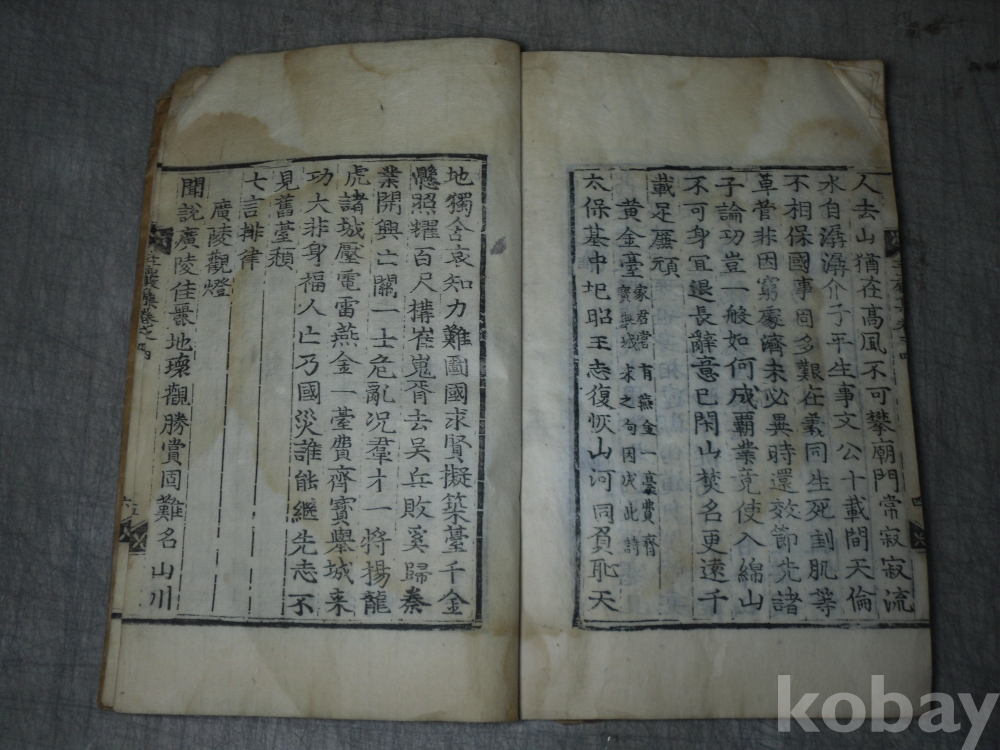 人去山猶在高風不可攀廟門常寂寂流
水自潺潺介子平生事文公十載間天倫
不相保國事固多艱在義同生死割肌等
草菅非因窮處濟未必異時還效節先諸
子論功豈一般如何成覇業竟使入綿山
不可身冝退長辭意已閑山焚名更遠千
載足廉頑
黃金臺家君嘗有燕金一臺費齊寶擧城求之句因成此詩
太保基中圮昭王志復恢山河同負恥天
地獨含哀知力難圖國求賢擬築臺千金
懸照耀百尺構崔嵬胥去吳兵敗奚歸秦
業開興亡關一士危亂况羣才一將揚龍
虎諸城壓電雷燕金一臺費齊寶舉城來
功大非身福人亡乃國災誰能繼先志不
見舊臺頹
七言排律
廣陵觀燈
聞說廣陵佳麗地瓌觀勝賞固難名山川
集卷之四
kobay